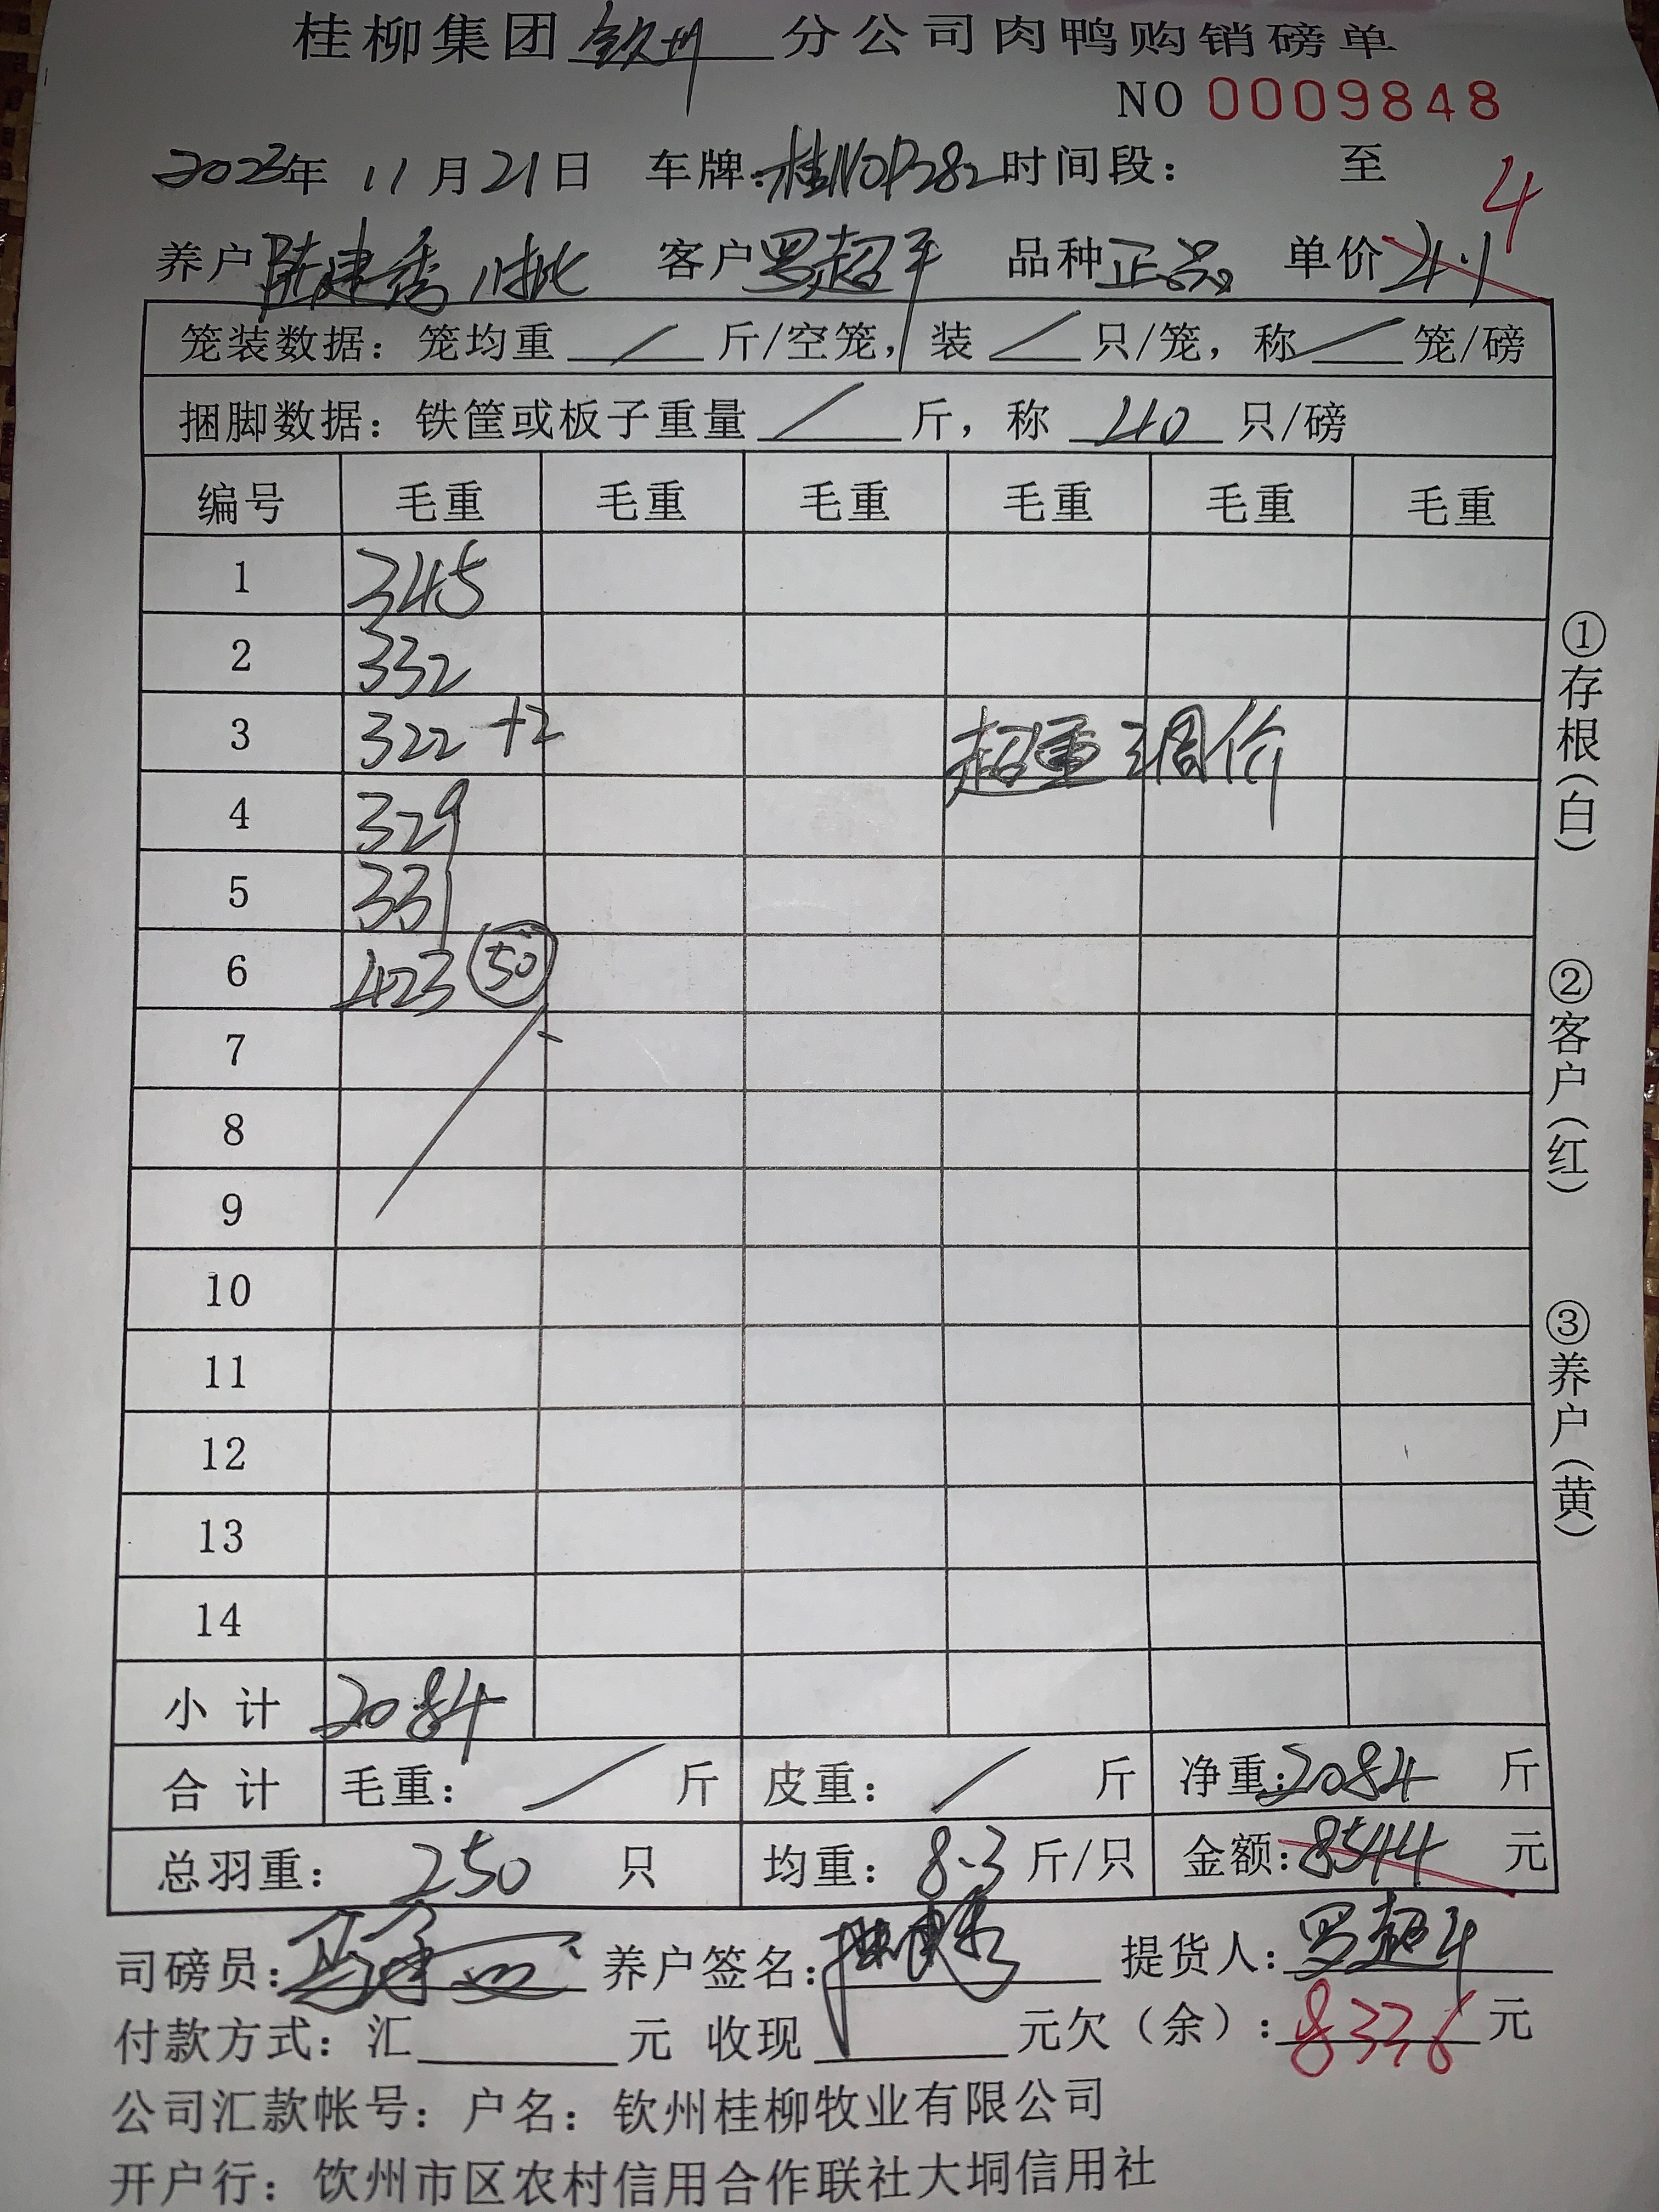 桂柳集团钦州分公司肉鸭购销磅单
NO 0009848
2023年 11月21日 车牌:桂N0P282 时间段: 至
4
养户 陆建秀 1批 客户 罗超平 品种 正品 单价 4.1
笼装数据: 笼均重 / 斤/空笼, 装 / 只/笼, 称 / 笼/磅
捆脚数据: 铁筐或板子重量 / 斤, 称 40 只/磅
编号 毛重 毛重 毛重 毛重 毛重 毛重
1 345
2 332
3 322 +2 超重调价
4 329
5 331
6 423 50
7
8
9
10
11
12
13
14
小计 2084
合计 毛重: / 斤 皮重: / 斤 净重:2084 斤
总羽重: 250 只 均重: 8.3 斤/只 金额:8544 元
司磅员: 养户签名: 提货人:罗超平
付款方式: 汇 元 收现 元欠(余):8336元
公司汇款帐号: 户名: 钦州桂柳牧业有限公司
开户行: 饮州市区农村信用合作联社大垌信用社
①存根(白)
②客户(红)
③养户(黄)